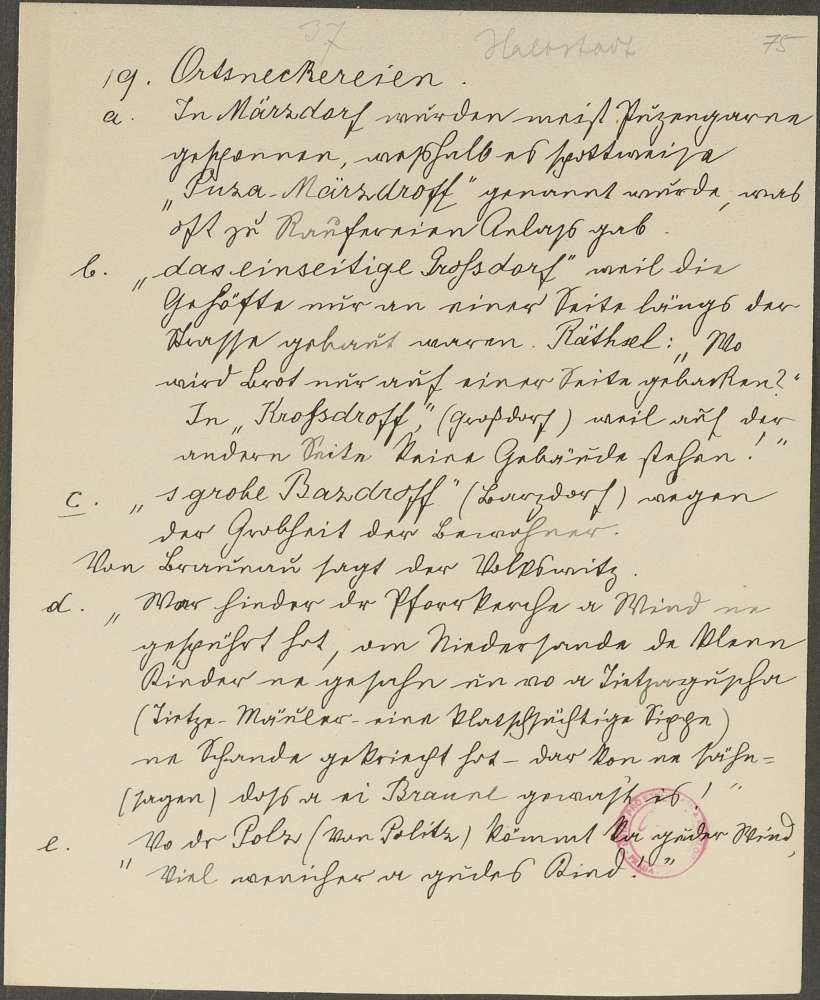 37 Halbstadt 75
19. Ortsneckereien.
a. In Märzdorf wurden meist Puzengarne
gesponnen, weßhalb es spottweise
„Puza-Märzdroff" genannt wurde, was
oft zu Raufereien Anlaß gab.
b. „das einseitige Großdorf" weil die
Gehöfte nur an einer Seite längs der
Strasse gebaut waren. Räthsel: „Wo
wird Brot nur auf einer Seite gebacken?"
In „Kroßdroff," (Großdorf) weil auf der
andern Seite keine Gebäude stehen!"
c. „s grobe Bazdroff" (Barzdorf) wegen
der Grobheit der Bewohner.
Von Braunau sagt der Volkswitz.
d. „War hinder dr Pforrkerche a Wind ne
gespührt hot, om Niedersande de klenn
Kinder ne gesahn un vo a Tietzaguscha
(Tietze-Mäuler-eine klatschsüchtige Sippe)
ne Schande gekriecht hot – dar kon ne sähn=
(sagen) doß a ei Braune gewast es!"
e. „Vo dr Polz (von Politz) kömmt ka guder Wind,
Viel wenicher a gudes Kind!"